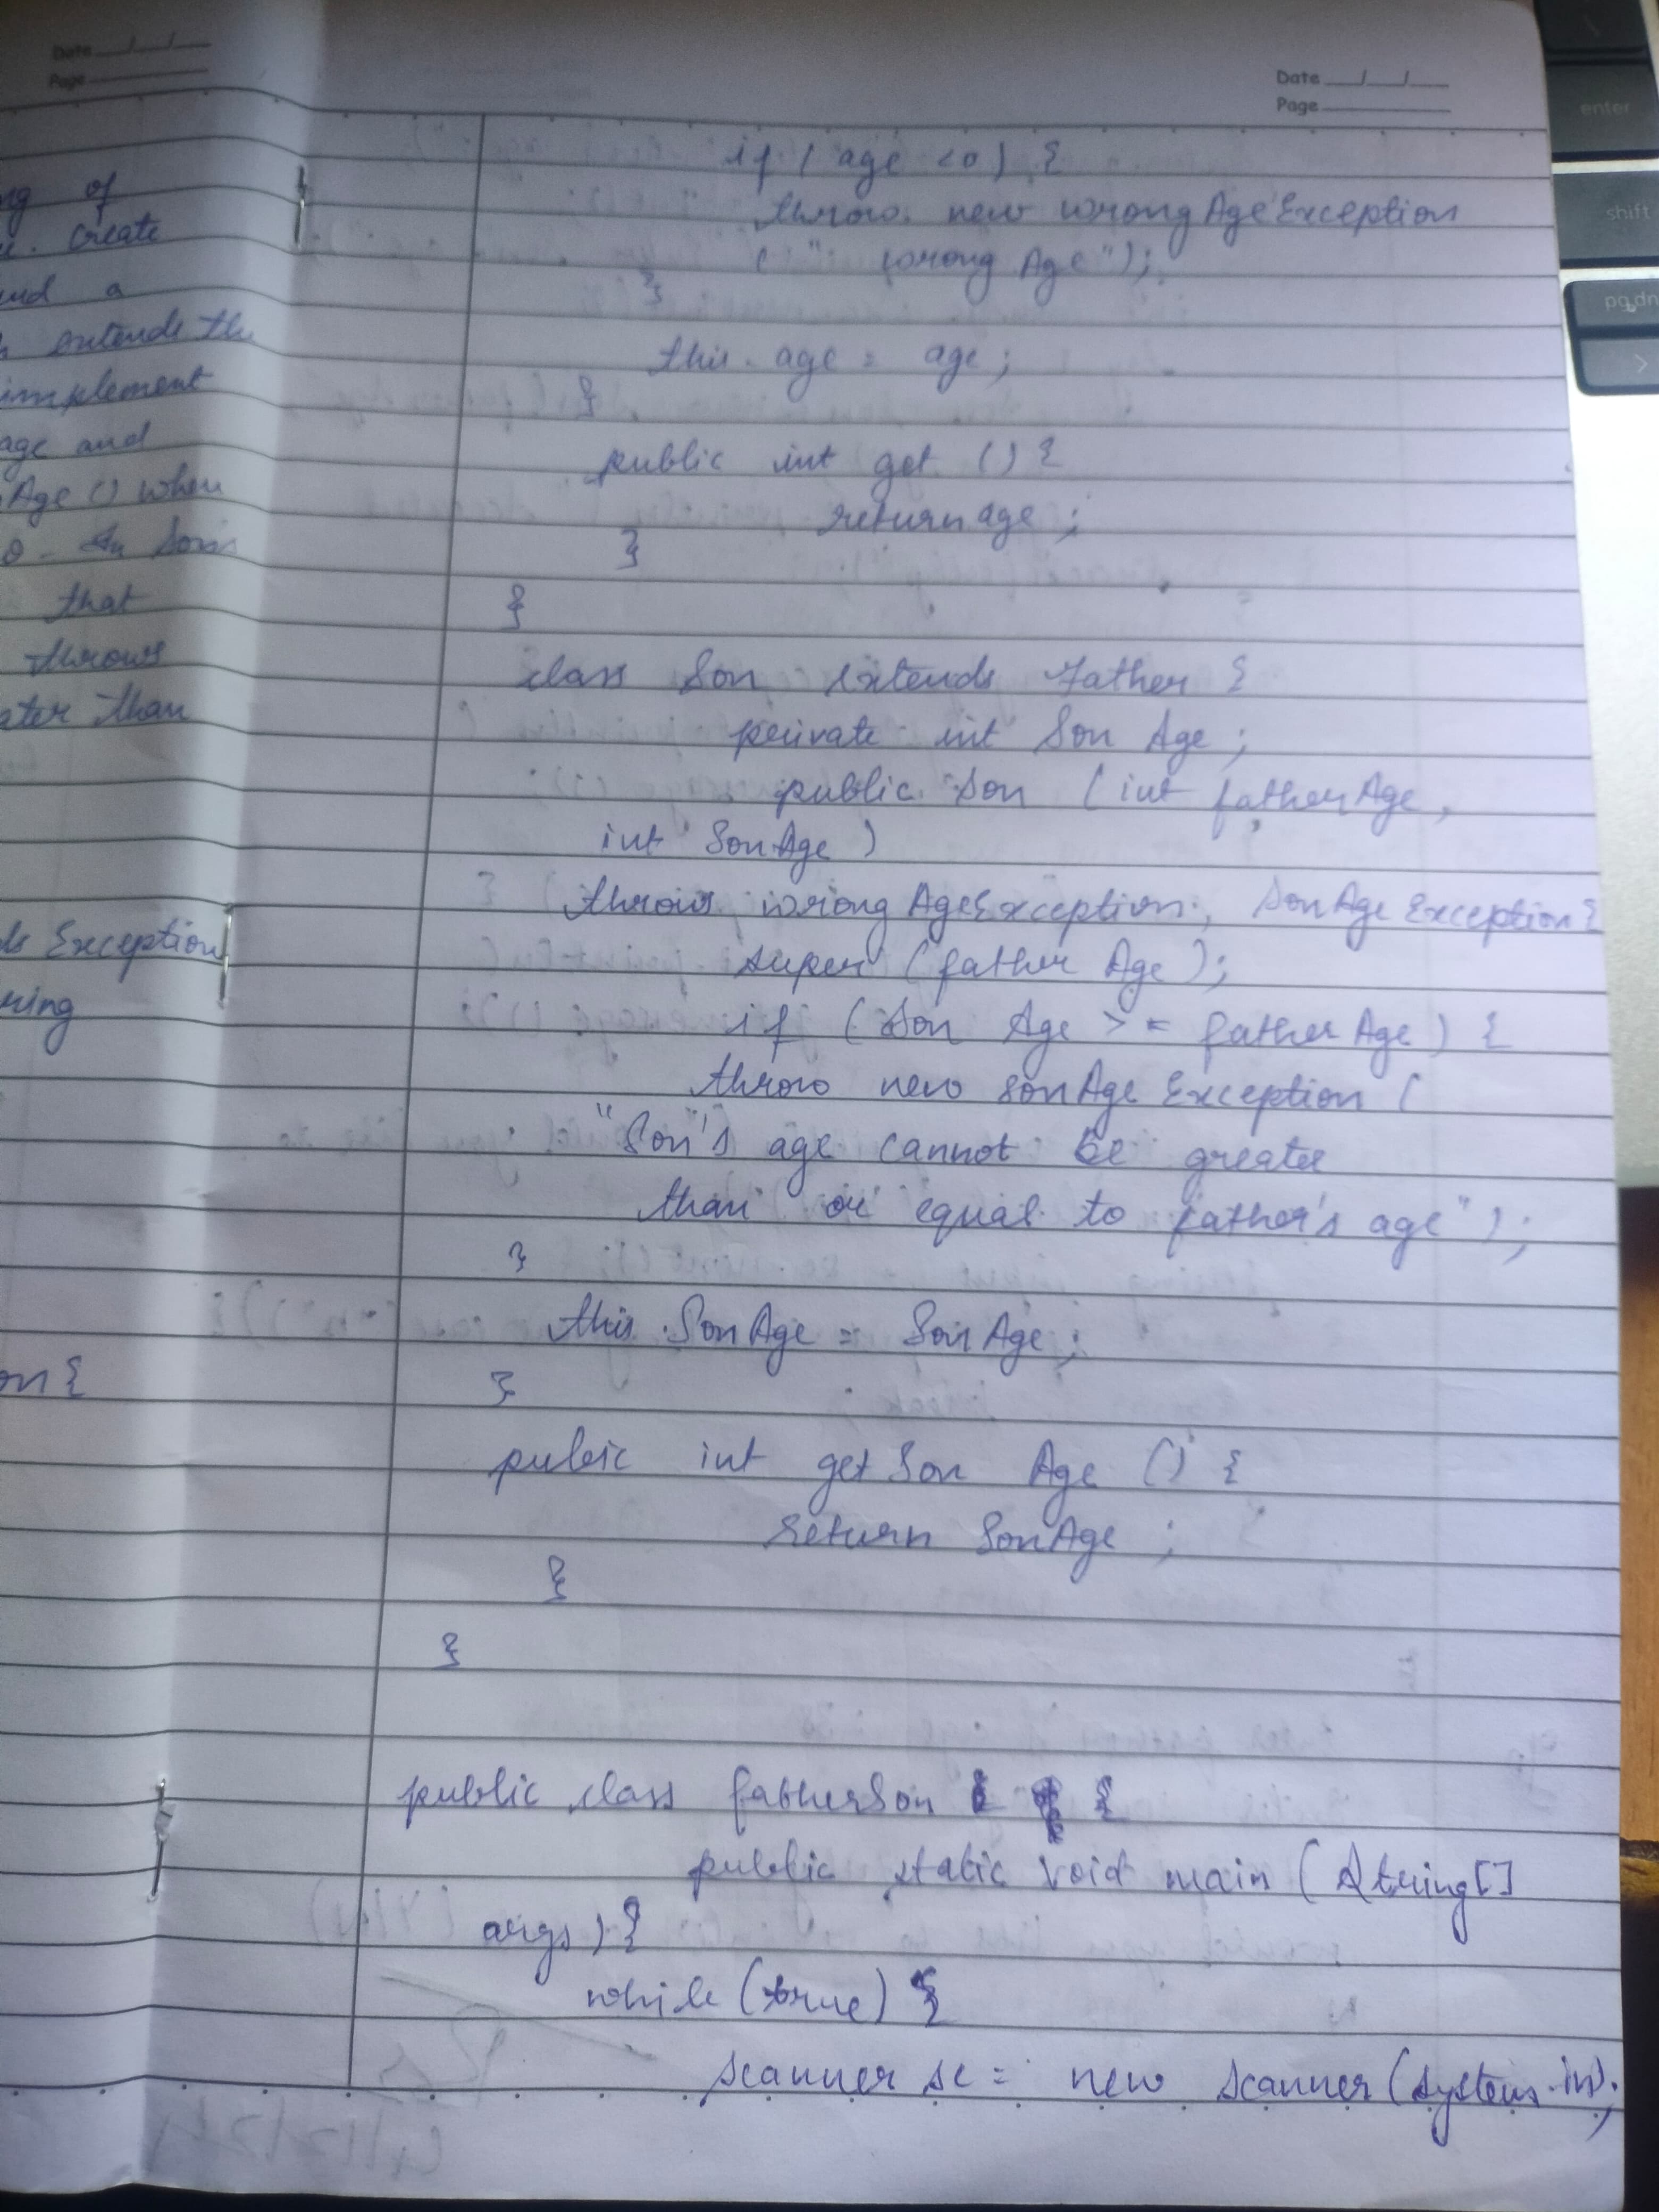 Date __/__/__
Page
ng of
create
and a
extends the
implement
age and
Age () when
0. In Son's
that
throws
ater than
ds Exception
ring
on {
Date __/__/__
Page
if ( age <0 ) {
throw new wrongAgeException
( " wrong Age");
}
this. age = age ;
}
public int get () {
return age ;
}
}
class Son extends Father {
private int Son Age ;
public Son ( int father Age ,
int Son Age )
throws wrong AgeException , SonAge Exception {
super ( father Age ) ;
if ( Son Age > = father Age ) {
throw new SonAge Exception (
"Son's age cannot be greater
than or equal to father's age" ) ;
}
this . Son Age = Son Age ;
}
public int get Son Age () {
return SonAge ;
}
}
public class fatherSon {
public static void main ( String []
args ) {
while (true) {
scanner sc = new scanner (system.in);
enter
shift
pg dn